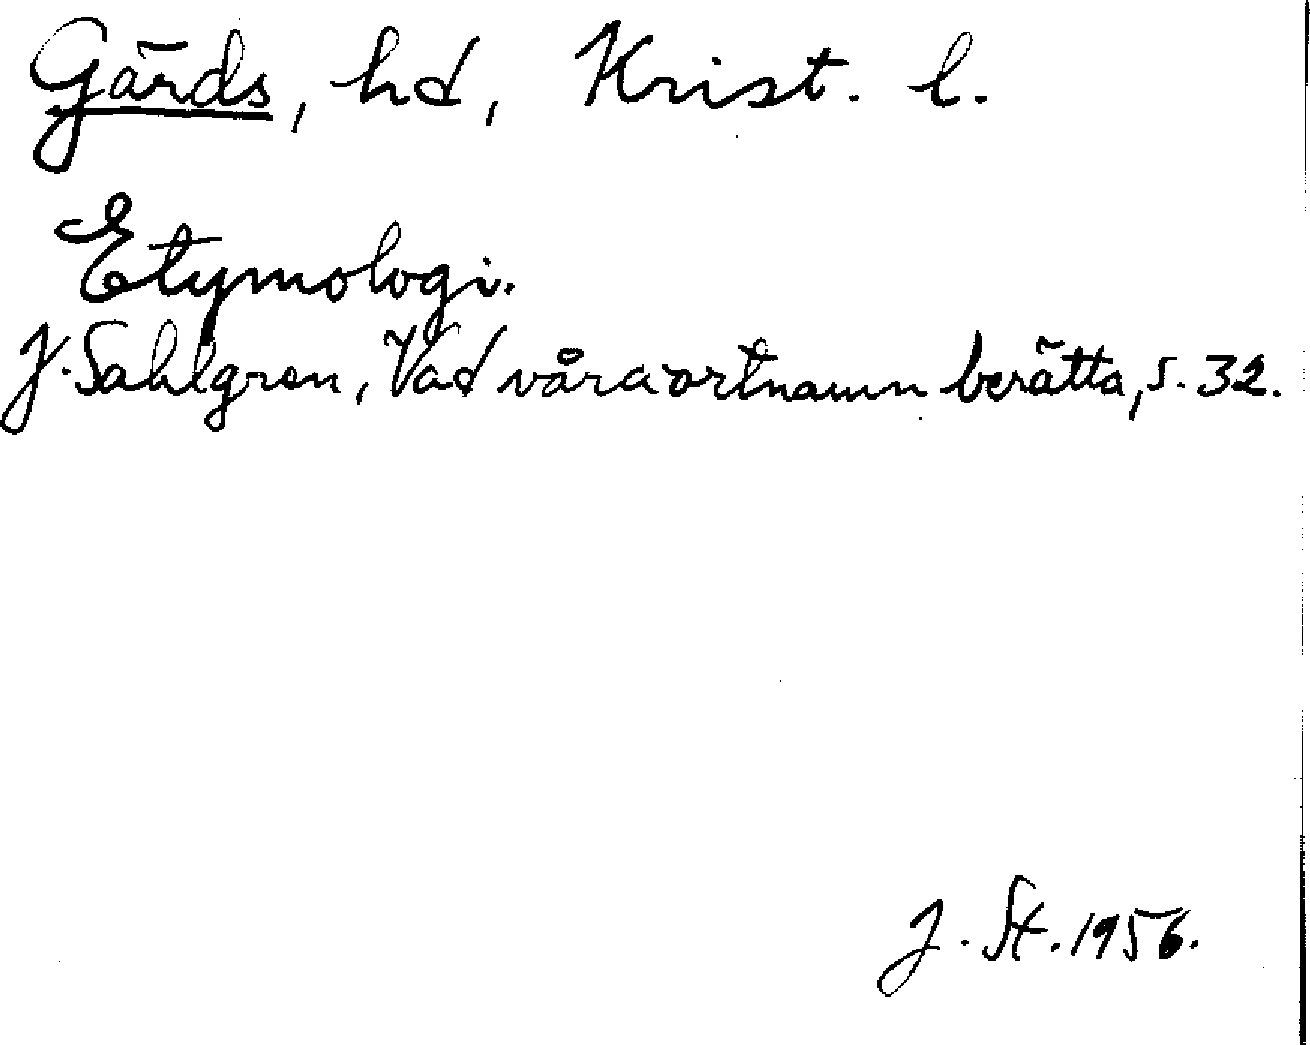 Gärds, hd, Krist. l.
Etymologi.
J. Sahlgren, Vad våra ortnamn berätta, s. 32.
J. St. 1956.